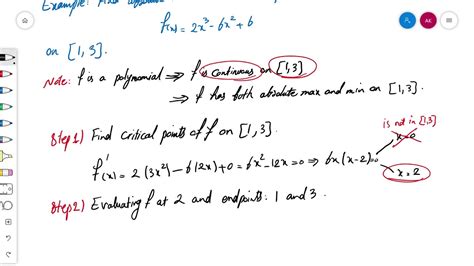 Example: Find absolute
f(x) = 2x³ - 6x² + 6
on [1, 3].
Note: f is a polynomial ⇒ f is continuous on [1,3]
⇒ f has both absolute max and min on [1, 3].
Step 1) Find critical points of f on [1, 3].
is not in [1,3]
x = 0
f'(x) = 2 (3x²) - 6 (2x) + 0 = 6x² - 12x = 0 ⇒ 6x (x-2) = 0
x = 2
Step 2) Evaluating f at 2 and endpoints: 1 and 3.
AK